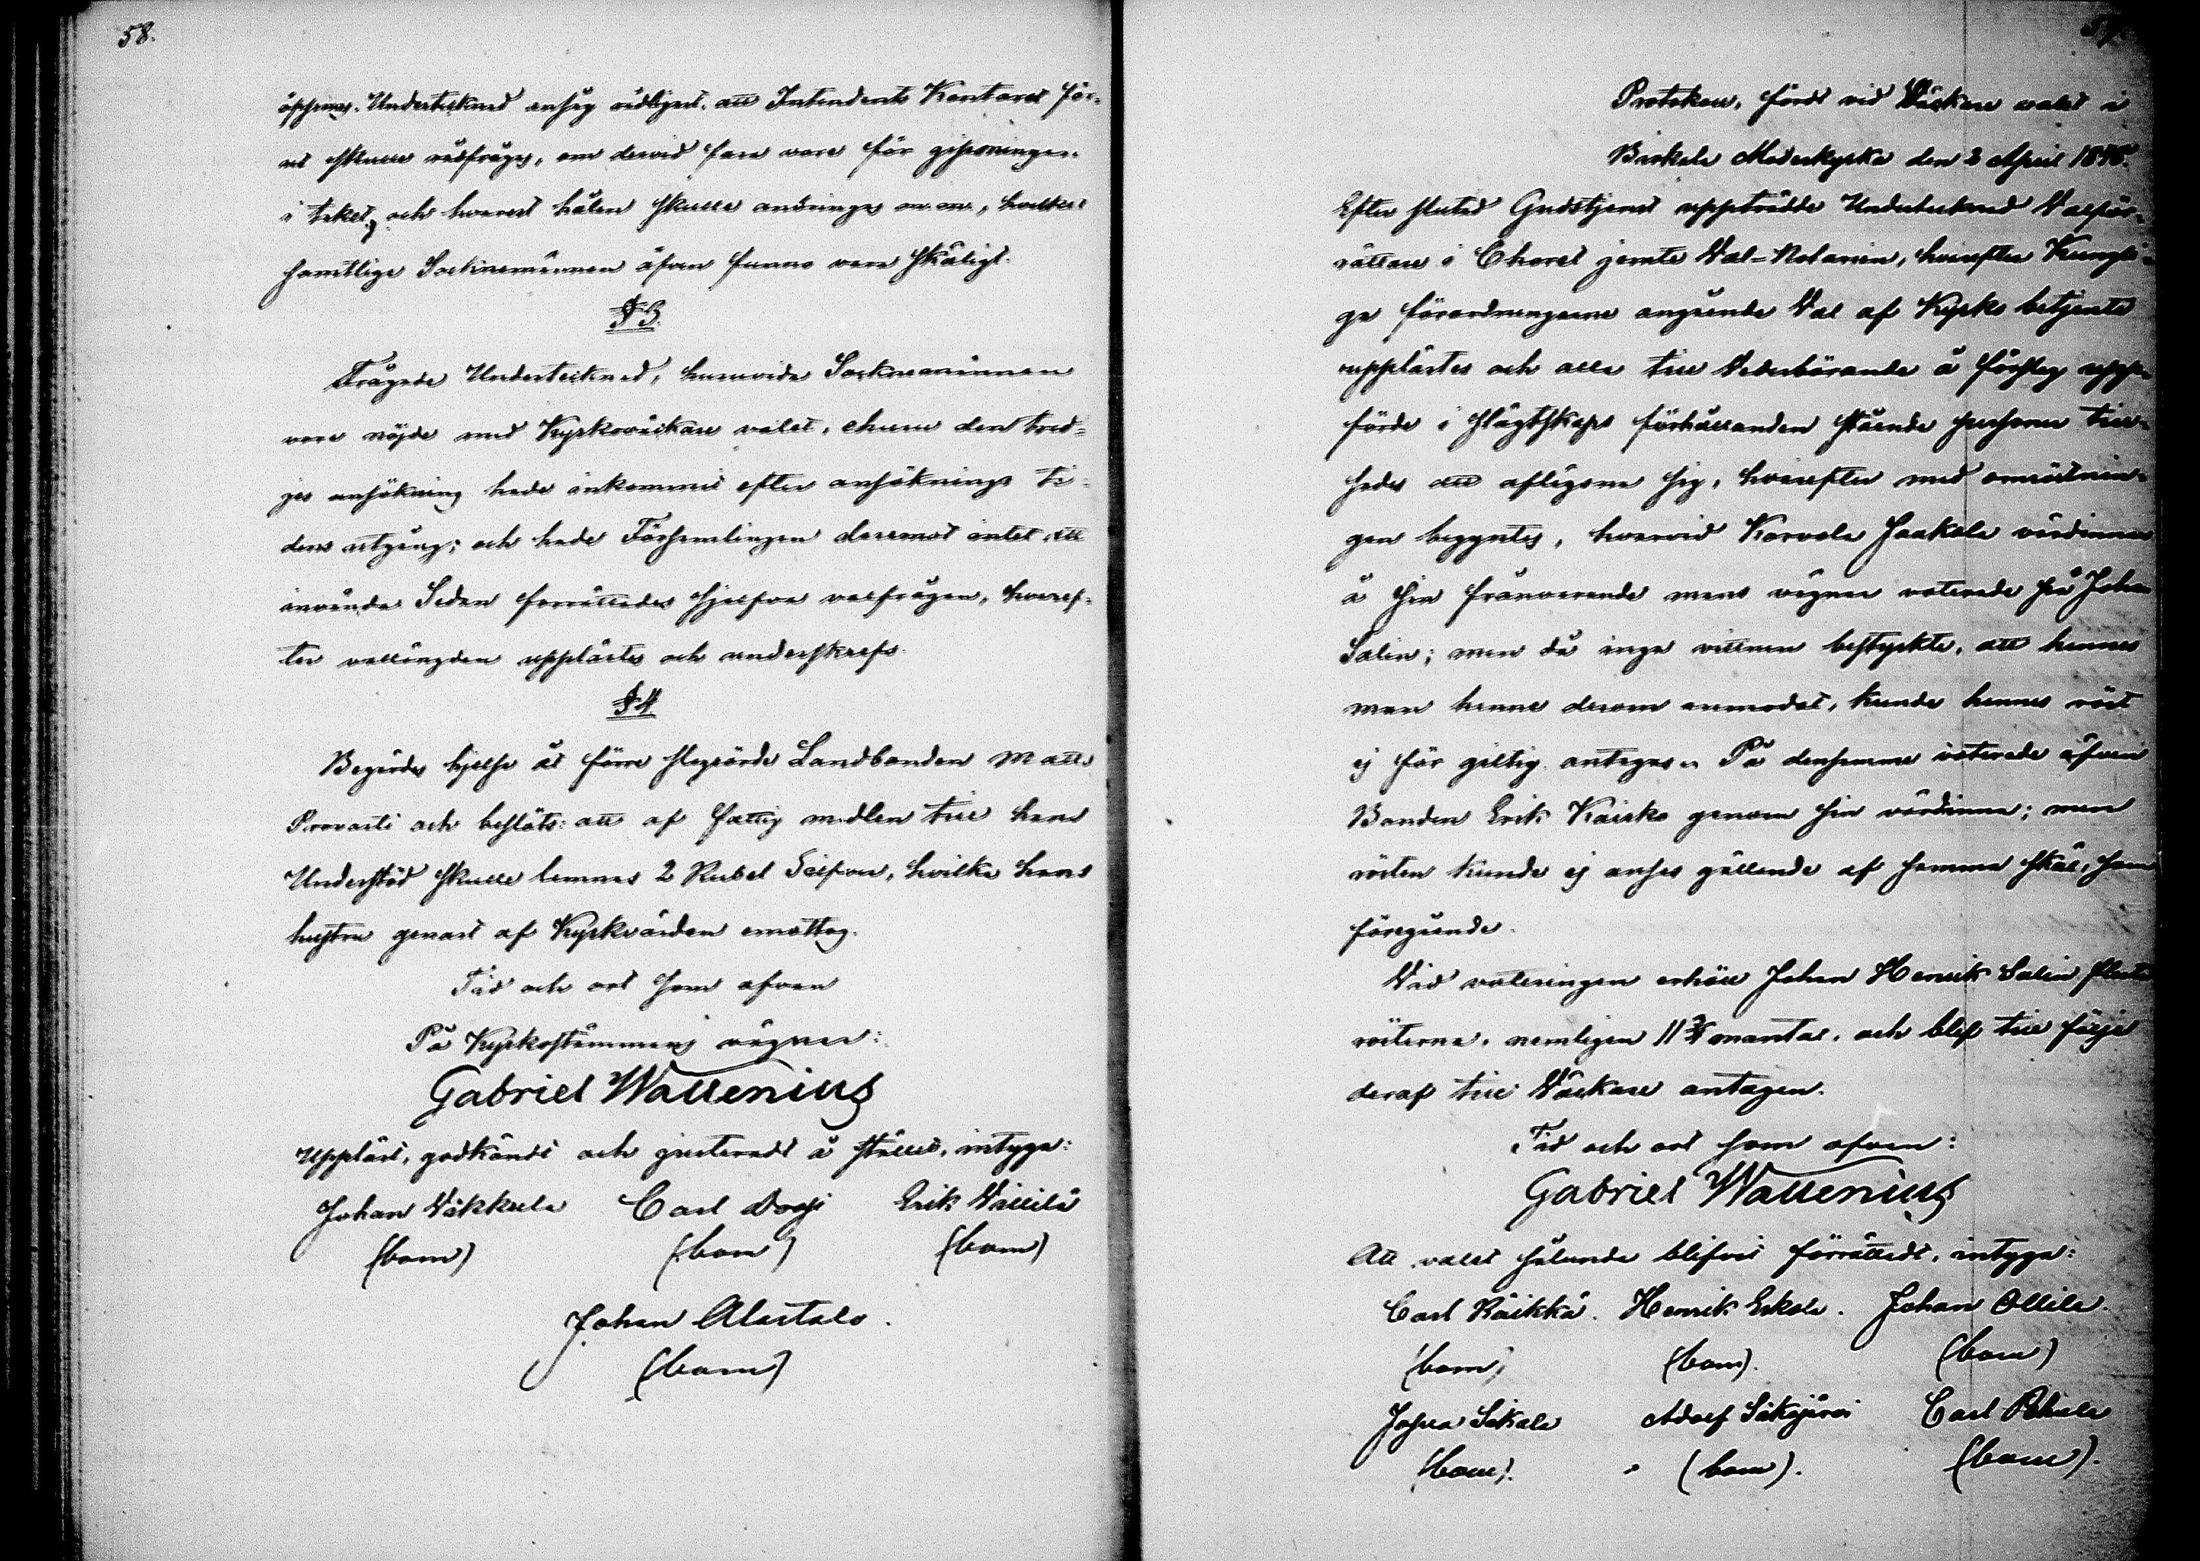 58.
öppnas. Undertecknad ansåg rådligast, att Intendents Kontoret för-
ut skulle rådfrågas, om dervid fara vore för gipsningen
i taket, och hvarest hålen skulle anbringas m.m., hvilket
samtlige Socknemännen äfven funno vara skäligt.
§ 3.
Frågade Undertecknad, huruvida Socknemännen
vore nöjde med Kyrkoväckare valet, ehuru den tred-
jes ansökning hade inkommit efter ansöknings ti-
dens utgång; och hade Församlingen deremot intet att
invända. Sedan förrättades sjelfva valfrågan, hvaref-
ter vallängden upplästes och underskrefs.
§ 4.
Begärdes hjelp åt förre Landbonden Matts
Provasti och beslöts: att af fattig medlen till hans
Understöd skulle lemnas 2 Rubel Silfver, hvilka hans
hustru genast af Kyrkvärden emottog.
Tid och ort som ofvan
På Kyrkostämmans vägnar:
Gabriel Wallenius
Uppläst, godkändt och justeradt å stället, intyga:
Johan Väkkelä Carl Erik Väililä
(bom) (bom) (bom)
Johan Alastalo.
(bom)
Protokoll, fördt vid Väckare valet i
Birkala Moderkyrka den 3 April
Efter slutad Gudstjenst uppträdde Undertecknad Valför-
rättare i Choret jemte Val-Notarien, hvarefter Kungli-
ga förordningarne angående Val af Kyrko betjente
upplästes och alla till Vederbörande å förslag upp-
förde i slägtskaps förhållanden stående personer till-
sades att aflägsna sig, hvarefter med omröstnin-
gen begyntes, hvarvid Korvola Jaakola värdinnan
å sin frånvarande mans vägnar voterade på Johan
Salin; men då inga vittnen bestyrkte, att hennes
man henne derom anmodat, kunde hennes röst
ej för giltig antagas. På densamme voterade äfven
Bonden Erik Kairko genom sin värdinna; men
rösten kunde ej anses gällande af samma skäl, som
föregående.
Vid voteringen erhöll Johan Henrik Salin flesta
rösterna, nemligen 11 3/4 mantal, och blef till följe
deraf till Väckare antagen.
Tid och ort som ofvan:
Gabriel Wallenius
Att valet sålunda blifvit förrättadt, intyga:
Carl Räikkä. Henrik Erkola. Johan Ollila.
(bom) (bom). (bom)
Josua Sikala Adolf Säkjärvi Carl
(bom). (bom). (bom).